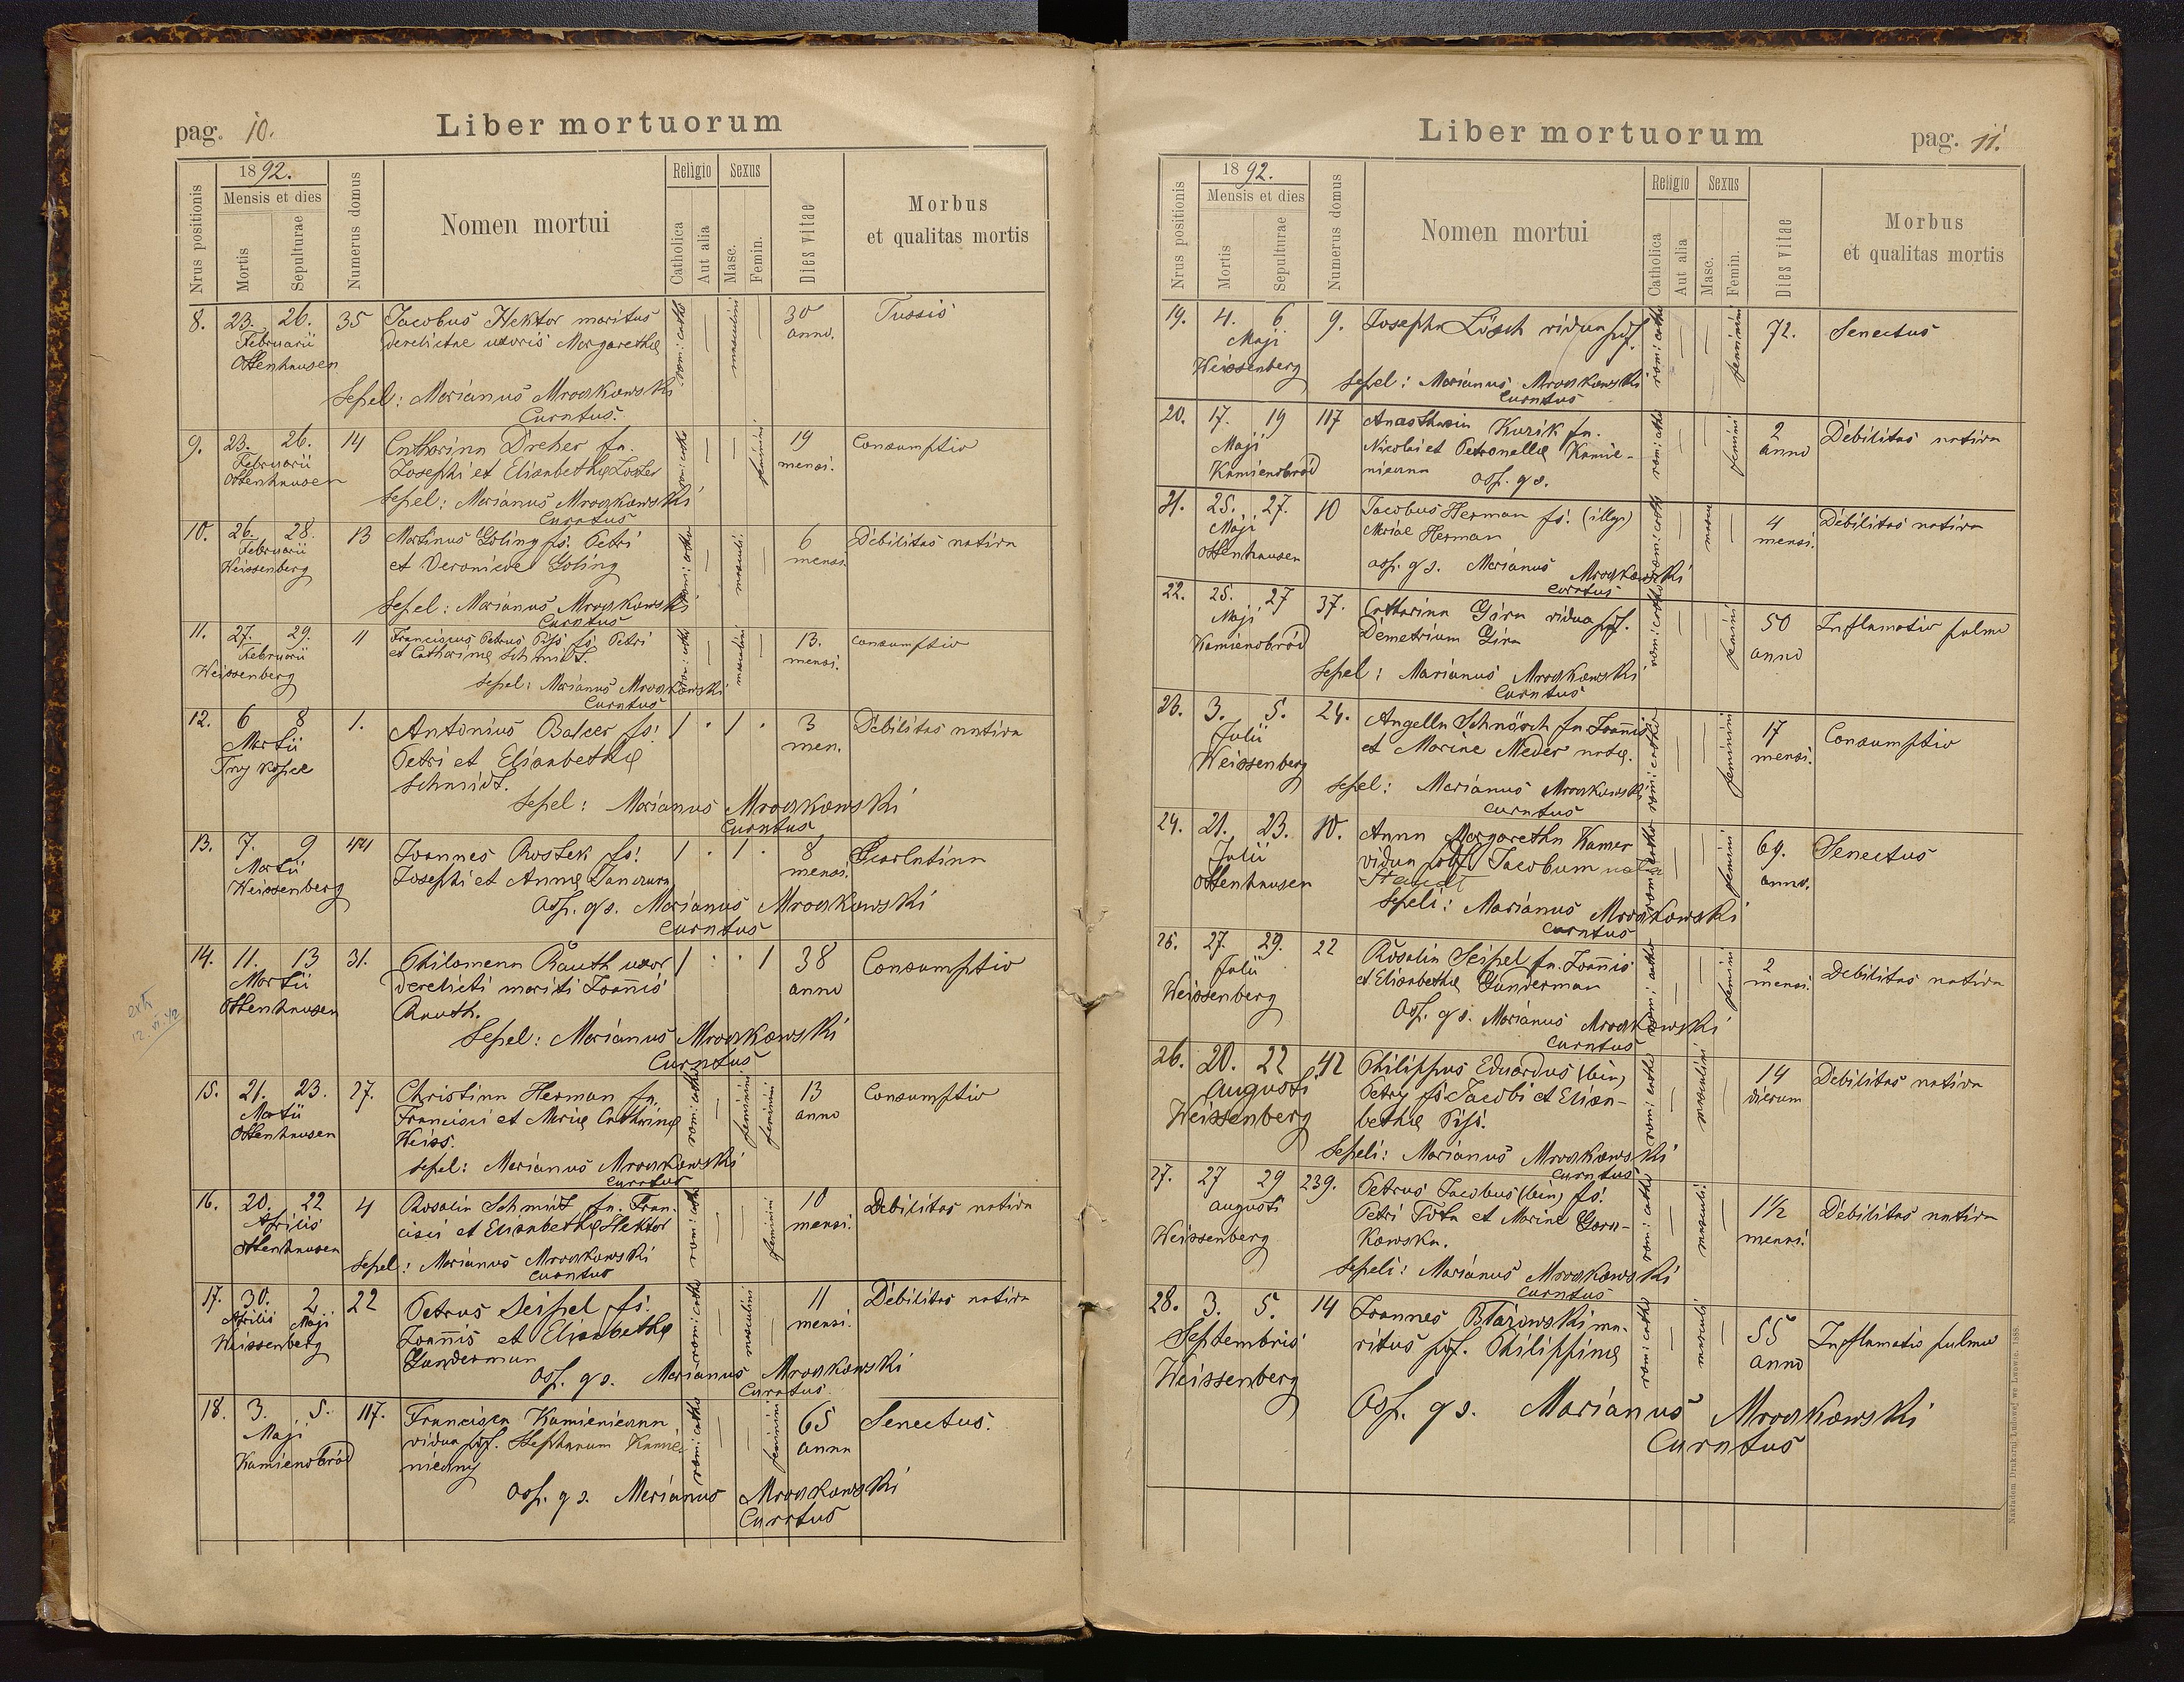 pag. 10.
Liber mortuorum
Nrus positionis
1892.
Mensis et dies
Mortis
Sepulturae
Numerus domus
Nomen mortui
Religio
Catholica
Aut alia
Sexus
Masc.
Femin.
Dies vitae
Morbus
et qualitas mortis
8. 23. 26. 35 Jacobus Hektor maritus rom: cath: — masculini — 30 Tussis
Februarii derelictae uxoris Margarethae anno.
Ottenhausen
Sepel: Marianus Mroczkowski
Curatus.
9. 23. 26. 14 Catharina Dreher fa. rom: cath: — — feminini 19 Consumptio
Februarii Josephi et Elisabethae mensi.
Ottenhausen
Sepel: Marianus Mroczkowski
Curatus
10. 26. 28. 13 Martinus Goling fs. Petri rom: catho: — masculi. — 6 Debilitas nativa
Februarii et Veronicae Goling mensi.
Weissenberg
Sepel: Marianus Mroczkowski
Curatus
11. 27. 29. 11 Franciscus Petrus fs. Petri rom: cath: — masculini — 13. consumptio
Februarii et Catharinae Schmidt. mensi.
Weissenberg
Sepel: Marianus Mroczkowski
Curatus
12. 6 8 1. Antonius Balcer fs. 1 · 1 · 3 Debilitas nativa
Martii Petri et Elisabethae men.
Schmidt.
Sepel: Marianus Mroczkowski
Curatus
13. 7. 9 Joannes Rostek fs. 1 · 1 · 8 Scarlatina
Martii Josephi et Annae mensi.
Weissenberg
Asp. gs. Marianus Mroczkowski
Curatus
14. 11. 13 31. Philomena Rauth uxor 1 : · 1 38 Consumptio
Martii derelicti mariti Joannis anno
Ottenhausen Rauth.
Sepel: Marianus Mroczkowski
Curatus
15. 21. 23. 27. Christina Herman fa. rom: catho: — feminini feminini 13 Consumptio
Martii Francisci et Mariae Catharinae anno
Ottenhausen Weiss.
Sepel: Marianus Mroczkowski
Curatus
16. 20. 22 4 Rosalia Schmidt fa. Fran- rom: cath: — — feminini 10 Debilitas nativa
Aprilis cisci et Elisabethae Hektor mensi.
Ottenhausen
Sepel: Marianus Mroczkowski
Curatus
17. 30. 2 22 Petrus Seipel fs. rom: catho: — masculini — 11 Debilitas nativa
Aprilis Maji Joannis et Elisabethae mensi.
Weissenberg Gunderman
Asp. gs. Marianus Mroczkowski
Curatus.
18. 3. 5. 117. Francisca Kamieniczna rom: catho: — — feminini 65 Senectus.
Maji vidua pst. Stephanum Kamie- anno
Kamienobród niczny
Asp. gs. Marianus Mroczkowski
Curatus
Liber mortuorum
pag. 11.
Nrus positionis
1892.
Mensis et dies
Mortis
Sepulturae
Numerus domus
Nomen mortui
Religio
Catholica
Aut alia
Sexus
Masc.
Femin.
Dies vitae
Morbus
et qualitas mortis
19. 4. 6 9. Josepha Lösch vidua pst. rom: catho: — — feminini 72. Senectus
Maji
Weissenberg
Sepel: Marianus Mroczkowski
Curatus
20. 17. 19 117 Anasthasia Kurik fa. rom: catho: — — feminini 2 Debilitas nativa
Maji Nicolai et Petronellae Kamie- anno
Kamienobród niczna
Asp. gs.
21. 25. 27. 10 Jacobus Herman fs. (illgi) rom: cath: — mascu — 4 Debilitas nativa
Maji Mariae Herman mensi.
Ottenhausen
Asp. gs. Marianus Mroczkowski
Curatus
22. 25. 27 37. Catharina Gira vidua pst. rom: catho: — — feminini 50 Inflamatio pulmo
Maji Demetrium Gira anno
Kamienobród
Sepel: Marianus Mroczkowski
Curatus
23. 3. 5. 24. Angella Schnösch fa. Joannis rom: catho: — — feminini 17 Consumptio
Julii et Mariae Meder natae. mensi.
Weissenberg
Sepel: Marianus Mroczkowski
Curatus
24. 21. 23. 10. Anna Margaretha Kamer rom: catho: — — feminini 69. Senectus
Julii vidua post Jacobum nata anno.
Ottenhausen
Sepeli: Marianus Mroczkowski
Curatus
25. 27. 29. 22 Rosalia Seipel fa. Joannis rom: catho: — — feminini 2 Debilitas nativa
Julii et Elisabethae Gunderman mensi.
Weissenberg
Asp. gs. Marianus Mroczkowski
Curatus
26. 20. 22 42 Philippus Eduardus (bin) rom: catho: — masculini — 14 Debilitas nativa
Augusti Petry fs. Jacobi et Elisa- dierum
Weissenberg bethae
Sepeli: Marianus Mroczkowski
Curatus
27. 27 29 239. Petrus Jacobus (bin) fs. rom: catho: — masculi. — 1½ Debilitas nativa
Augusti Petri et Mariae Gora- mensi.
Weissenberg kowska.
Sepeli: Marianus Mroczkowski
Curatus
28. 3. 5. 14 Joannes Błażowski ma- rom: catho: — masculi — 55 Inflamatio pulmo
Septembris ritus pst. Philippinae anno
Weissenberg
Asp. gs. Marianus Mroczkowski
Curatus
Nakładem Drukarni Ludowej we Lwowie. 1888.